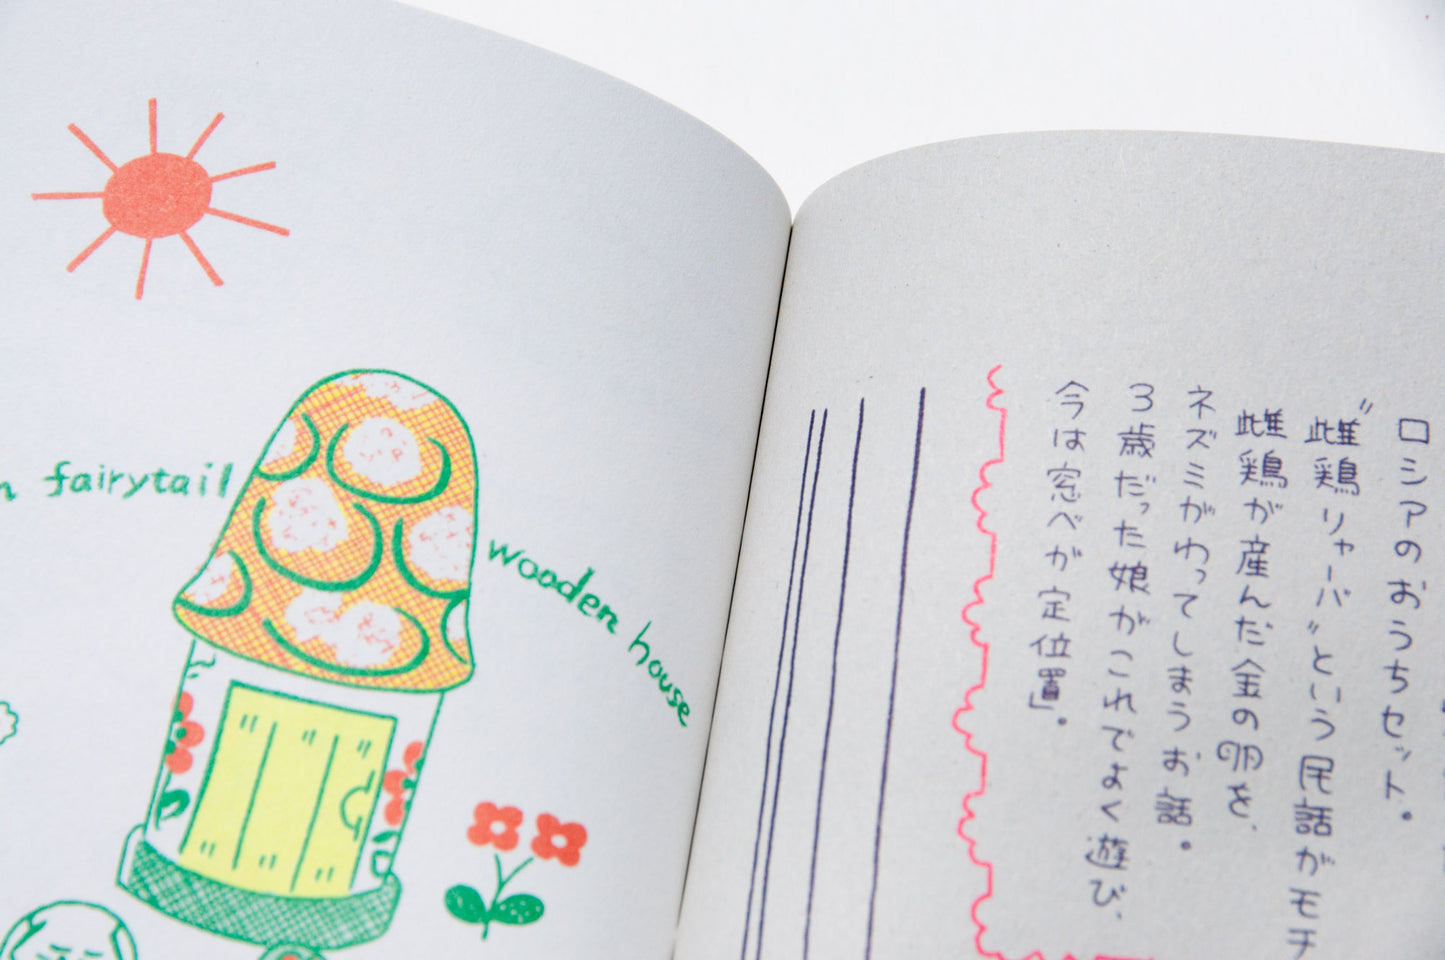 fairytail
wooden house
ロシアのおうちセット。
〝雌鶏リャーバ〟という民話がモチ
雌鶏が産んだ金の卵を、
ネズミがわってしまうお話。
3歳だった娘がこれでよく遊び、
今は窓べが定位置「。